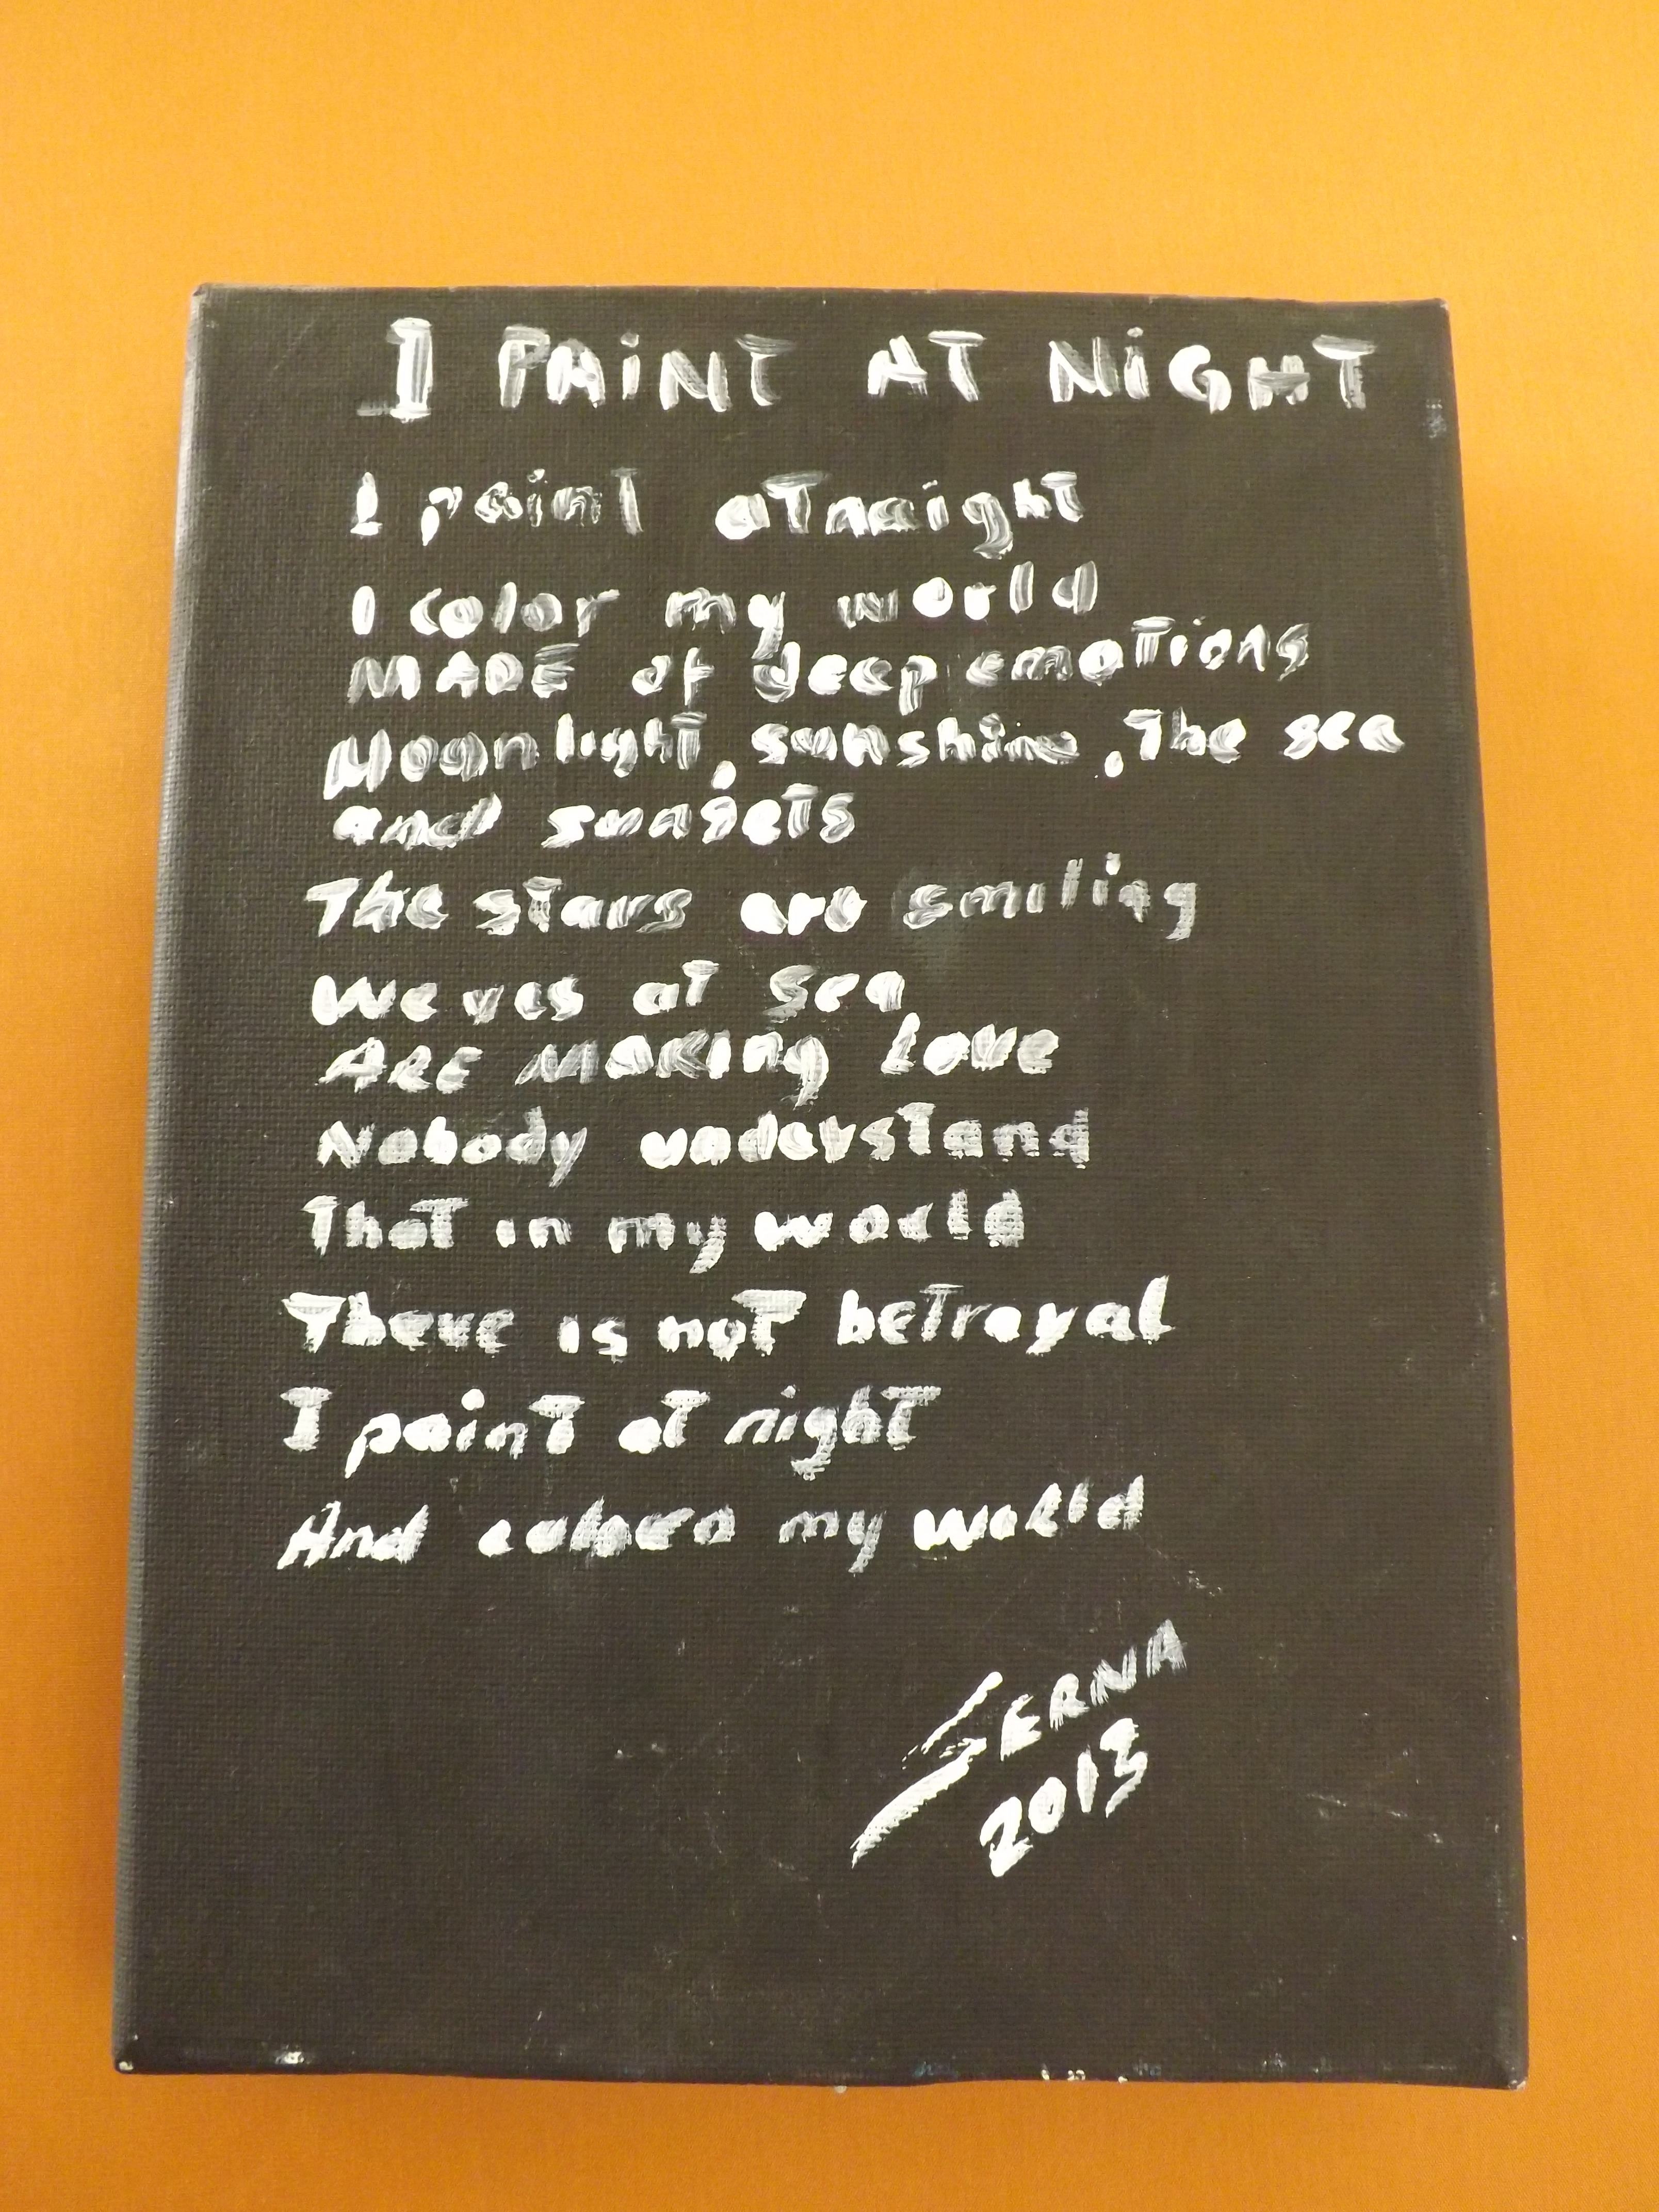 I PAINT AT NIGHT
I paint at night
I color my world
MADE of deep emotions
Moonlight, sunshine, The sea
and sunsets
The stars are smiling
Waves at sea
ARE MAKING LOVE
Nobody understand
That in my world
There is not betrayal
I paint at night
And my world
SERNA
2013